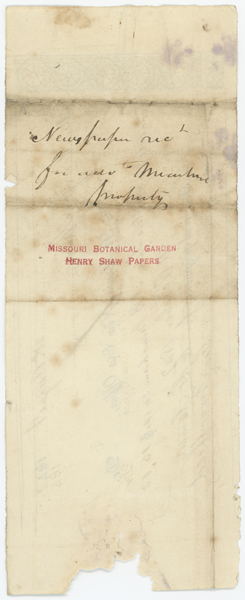 Newspaper rect
for adv
Property
MISSOURI BOTANICAL GARDEN
HENRY SHAW PAPERS